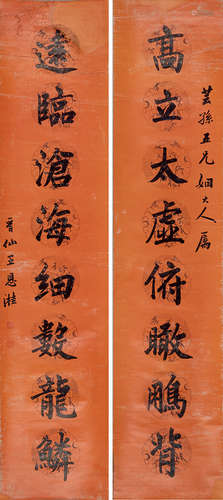 芸孫五兄姻大人屬
高立太虛俯瞰鵬背
遠臨滄海細數龍鱗
晉仙王恩湛